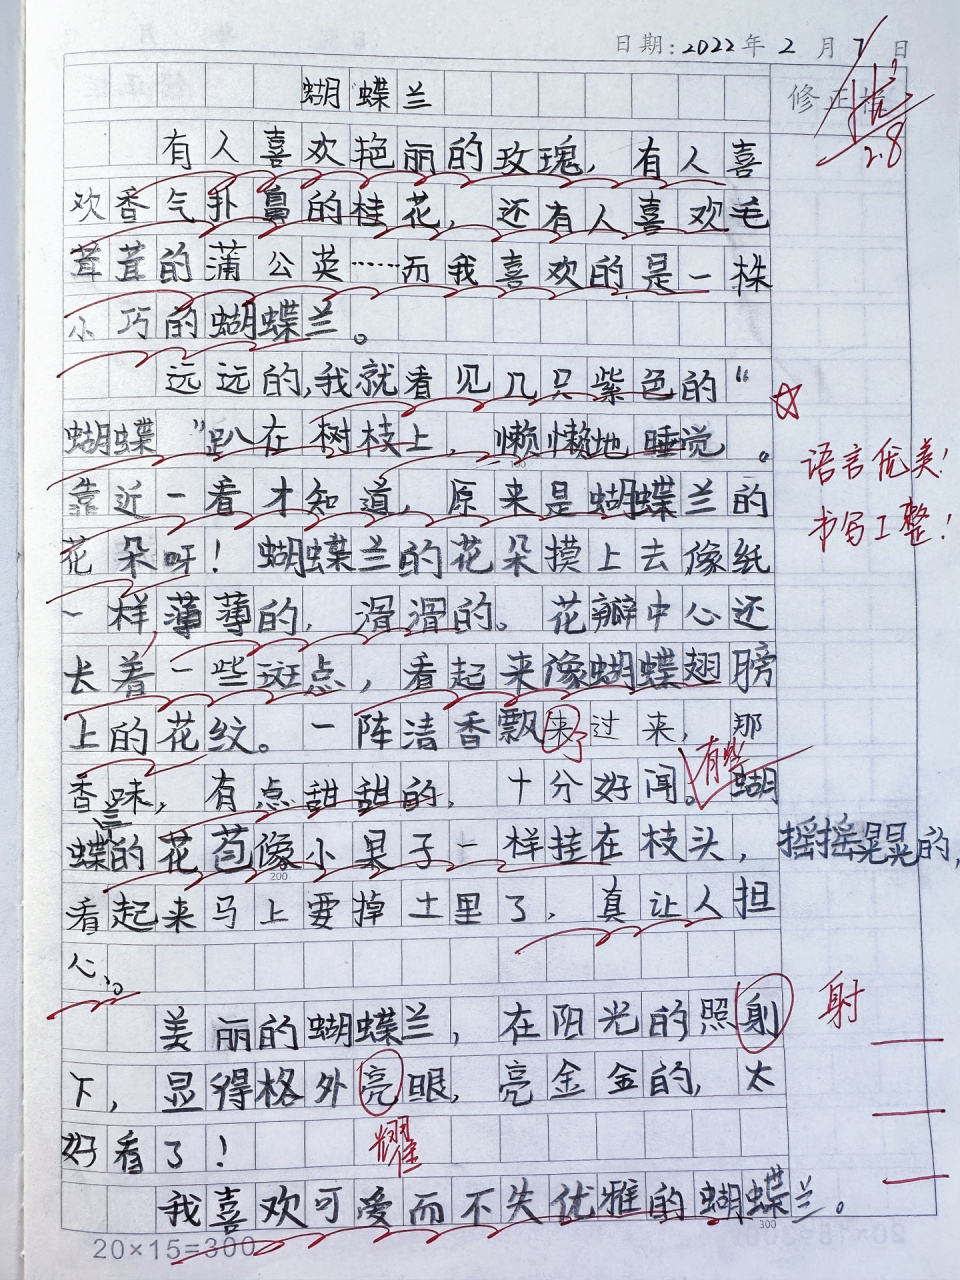 日期:2022年2月7日
蝴蝶兰
修正栏
2.8
有人喜欢艳丽的玫瑰，有人喜
欢香气扑鼻的桂花，还有人喜欢毛
茸茸的蒲公英……而我喜欢的是一株
小巧的蝴蝶兰。
远远的,我就看见几只紫色的“
蝴蝶”趴在树枝上，懒懒地睡觉。
靠近一看才知道，原来是蝴蝶兰的
花朵呀！蝴蝶兰的花朵摸上去像纸
一样，薄薄的，滑滑的。花瓣中心还
长着一些斑点，看起来像蝴蝶翅膀
上的花纹。一阵洁香飘来过来，那
了
有些
香味，有点甜甜的，十分好闻。蝴
兰
蝶的花苞像小果子一样挂在枝头，摇摇晃晃的，
看起来马上要掉土里了，真让人担
心。
美丽的蝴蝶兰，在阳光的照射
下，显得格外亮眼，亮金金的，太
耀
好看了！
我喜欢可爱而不失优雅的蝴蝶兰。
语言优美！
书写工整！
射
100
200
300
20×15=300